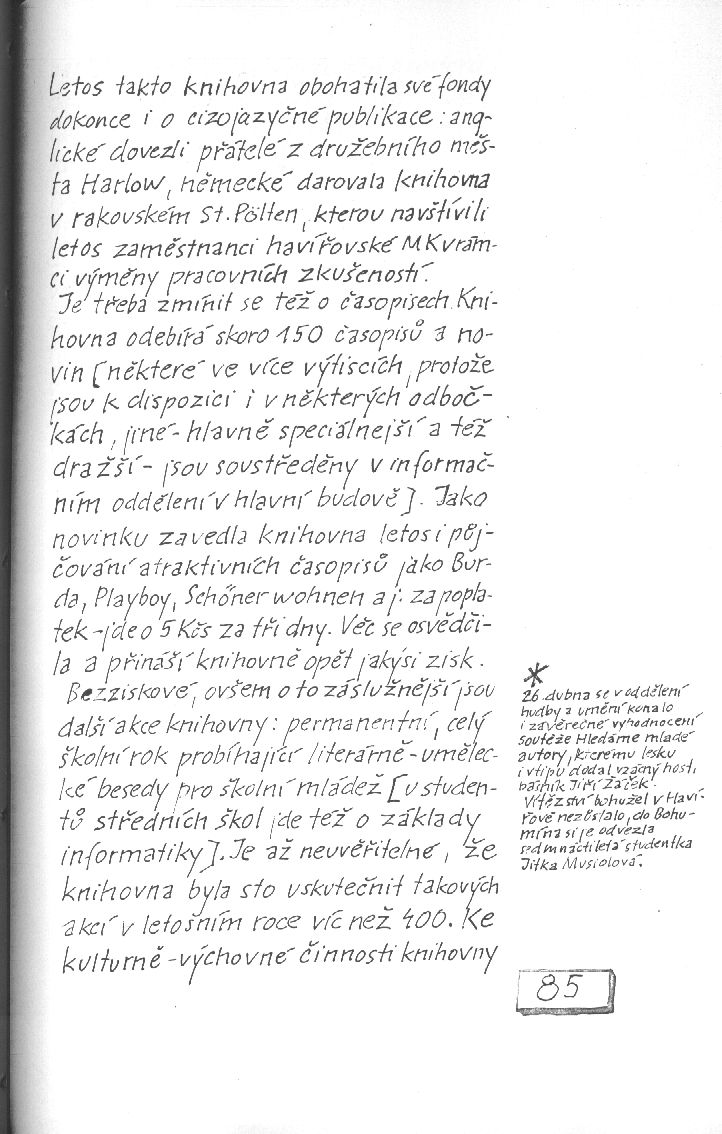 Letos takto knihovna obohatila své fondy
dokonce i o cizojazyčné publikace: ang-
lické dovezli přátelé z družebního měs-
ta Harlow, německé darovala knihovna
v rakouském St. Pölten, kterou navštívili
letos zaměstnanci havířovské MK v rám-
ci výměny pracovních zkušeností.
Je třeba zmínit se též o časopisech. Kni-
hovna odebírá skoro 150 časopisů a no-
vin [některé ve více výtiscích, protože
jsou k dispozici i v některých odboč-
kách, jiné - hlavně speciálnější a též
dražší - jsou soustředěny v informač-
ním oddělení v hlavní budově]. Jako
novinku zavedla knihovna letos i půj-
čování atraktivních časopisů jako Bur-
da, Playboy, Schöner wohnen aj. za popla-
tek - jde o 5 Kčs za tři dny. Věc se osvědči-
la a přináší knihovně opět jakýsi zisk.
Bezziskové, ovšem o to záslužnější jsou
další akce knihovny: permanentní, celý
školní rok probíhající literárně - umělec-
ké besedy pro školní mládež [u studen-
tů středních škol jde též o základy
informatiky]. Je až neuvěřitelné, že
knihovna byla sto uskutečnit takových
akcí v letošním roce víc než 400. Ke
kulturně - výchovné činnosti knihovny
*
26. dubna se v oddělení
hudby a umění konalo
i závěrečné vyhodnocení
soutěže Hledáme mladé
autory, kterému lesku
i vtipu dodal vzácný host,
básník Jiří Žáček.
Vítězství bohužel v Haví-
řově nezůstalo, do Bohu-
mína si je odvezla
sedmnáctiletá studentka
Jitka Musiolová.
85